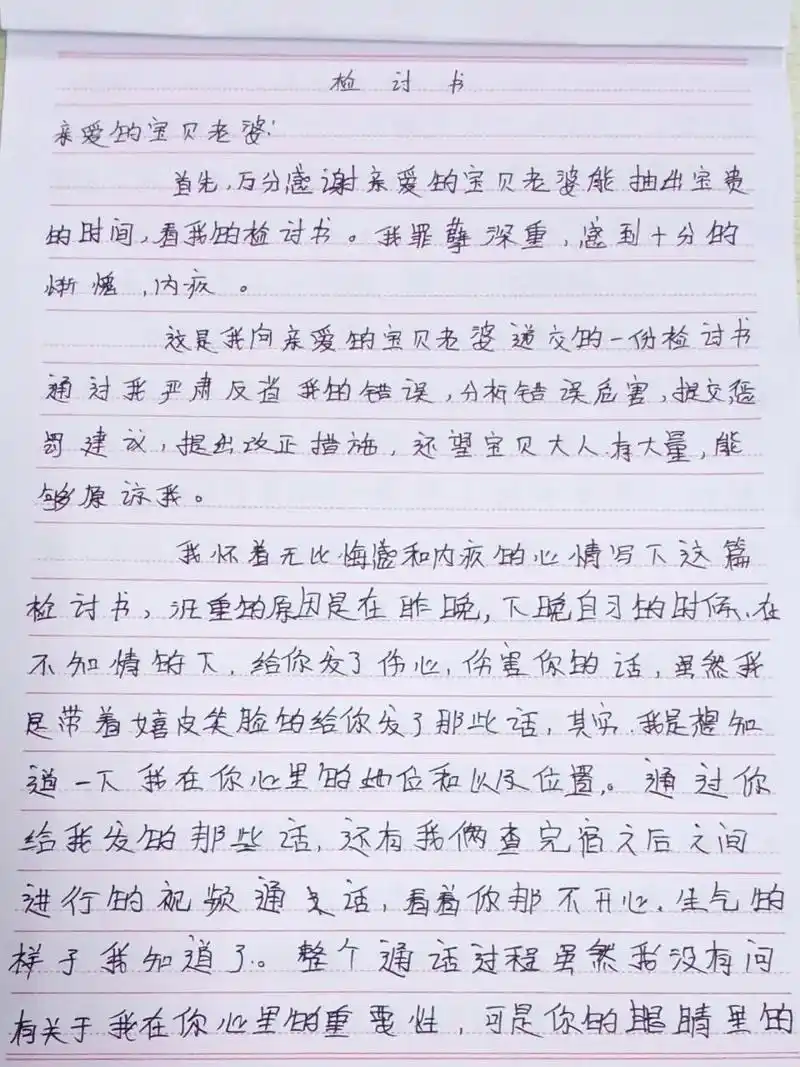 检讨书
亲爱的宝贝老婆:
首先,万分感谢亲爱的宝贝老婆能抽出宝贵
的时间,看我的检讨书。我罪孽深重,感到十分的
惭愧,内疚。
这是我向亲爱的宝贝老婆递交的一份检讨书
通过我严肃反省我的错误,分析错误危害,提交惩
罚建议,提出改正措施,还望宝贝大人有大量,能
够原谅我。
我怀着无比悔感和内疚的心情写下这篇
检讨书,沉重的原因是在昨晚,下晚自习的时候,在
不知情的下,给你发了伤心,伤害你的话,虽然我
是带着嬉皮笑脸的给你发了那些话,其实,我是想知
道一下我在你心里的地位和以及位置。通过你
给我发的那些话,还有我俩查完宿之后之间
进行的视频通话,看着你那不开心,生气的
样子我知道了。整个通话过程虽然我没有问
有关于我在你心里的重要性,可是你的眼睛里的